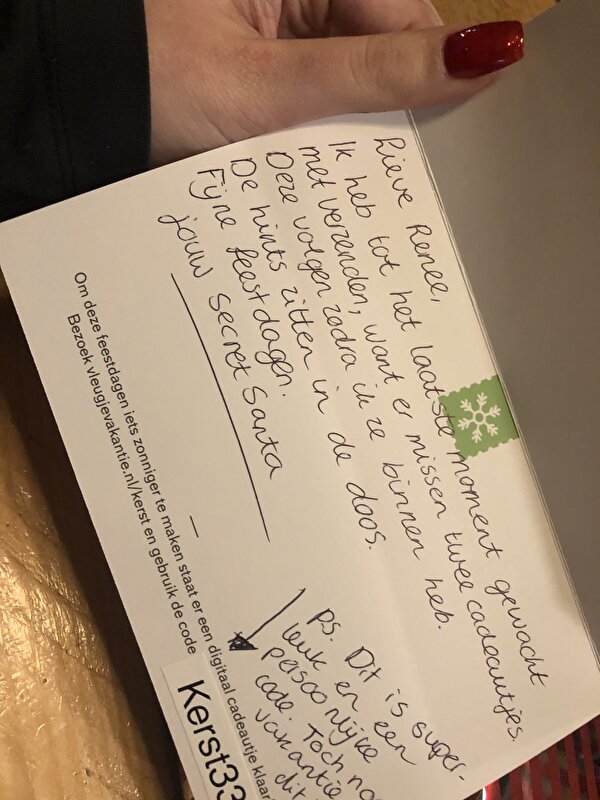 Lieve Renee,
Ik heb tot het laatste moment gewacht
met verzenden, want er missen twee cadeautjes.
Deze volgen zodra ik ze binnen heb.
De hints zitten in de doos.
Fijne feestdagen.
jouw secret Santa
PS. Dit is super-
leuk en een
persoonlijke
code. Toch
vakantie
dit
Om deze feestdagen iets zonniger te maken staat er een digitaal cadeautje klaar
Bezoek vleugjevakantie.nl/kerst en gebruik de code
Kerst33